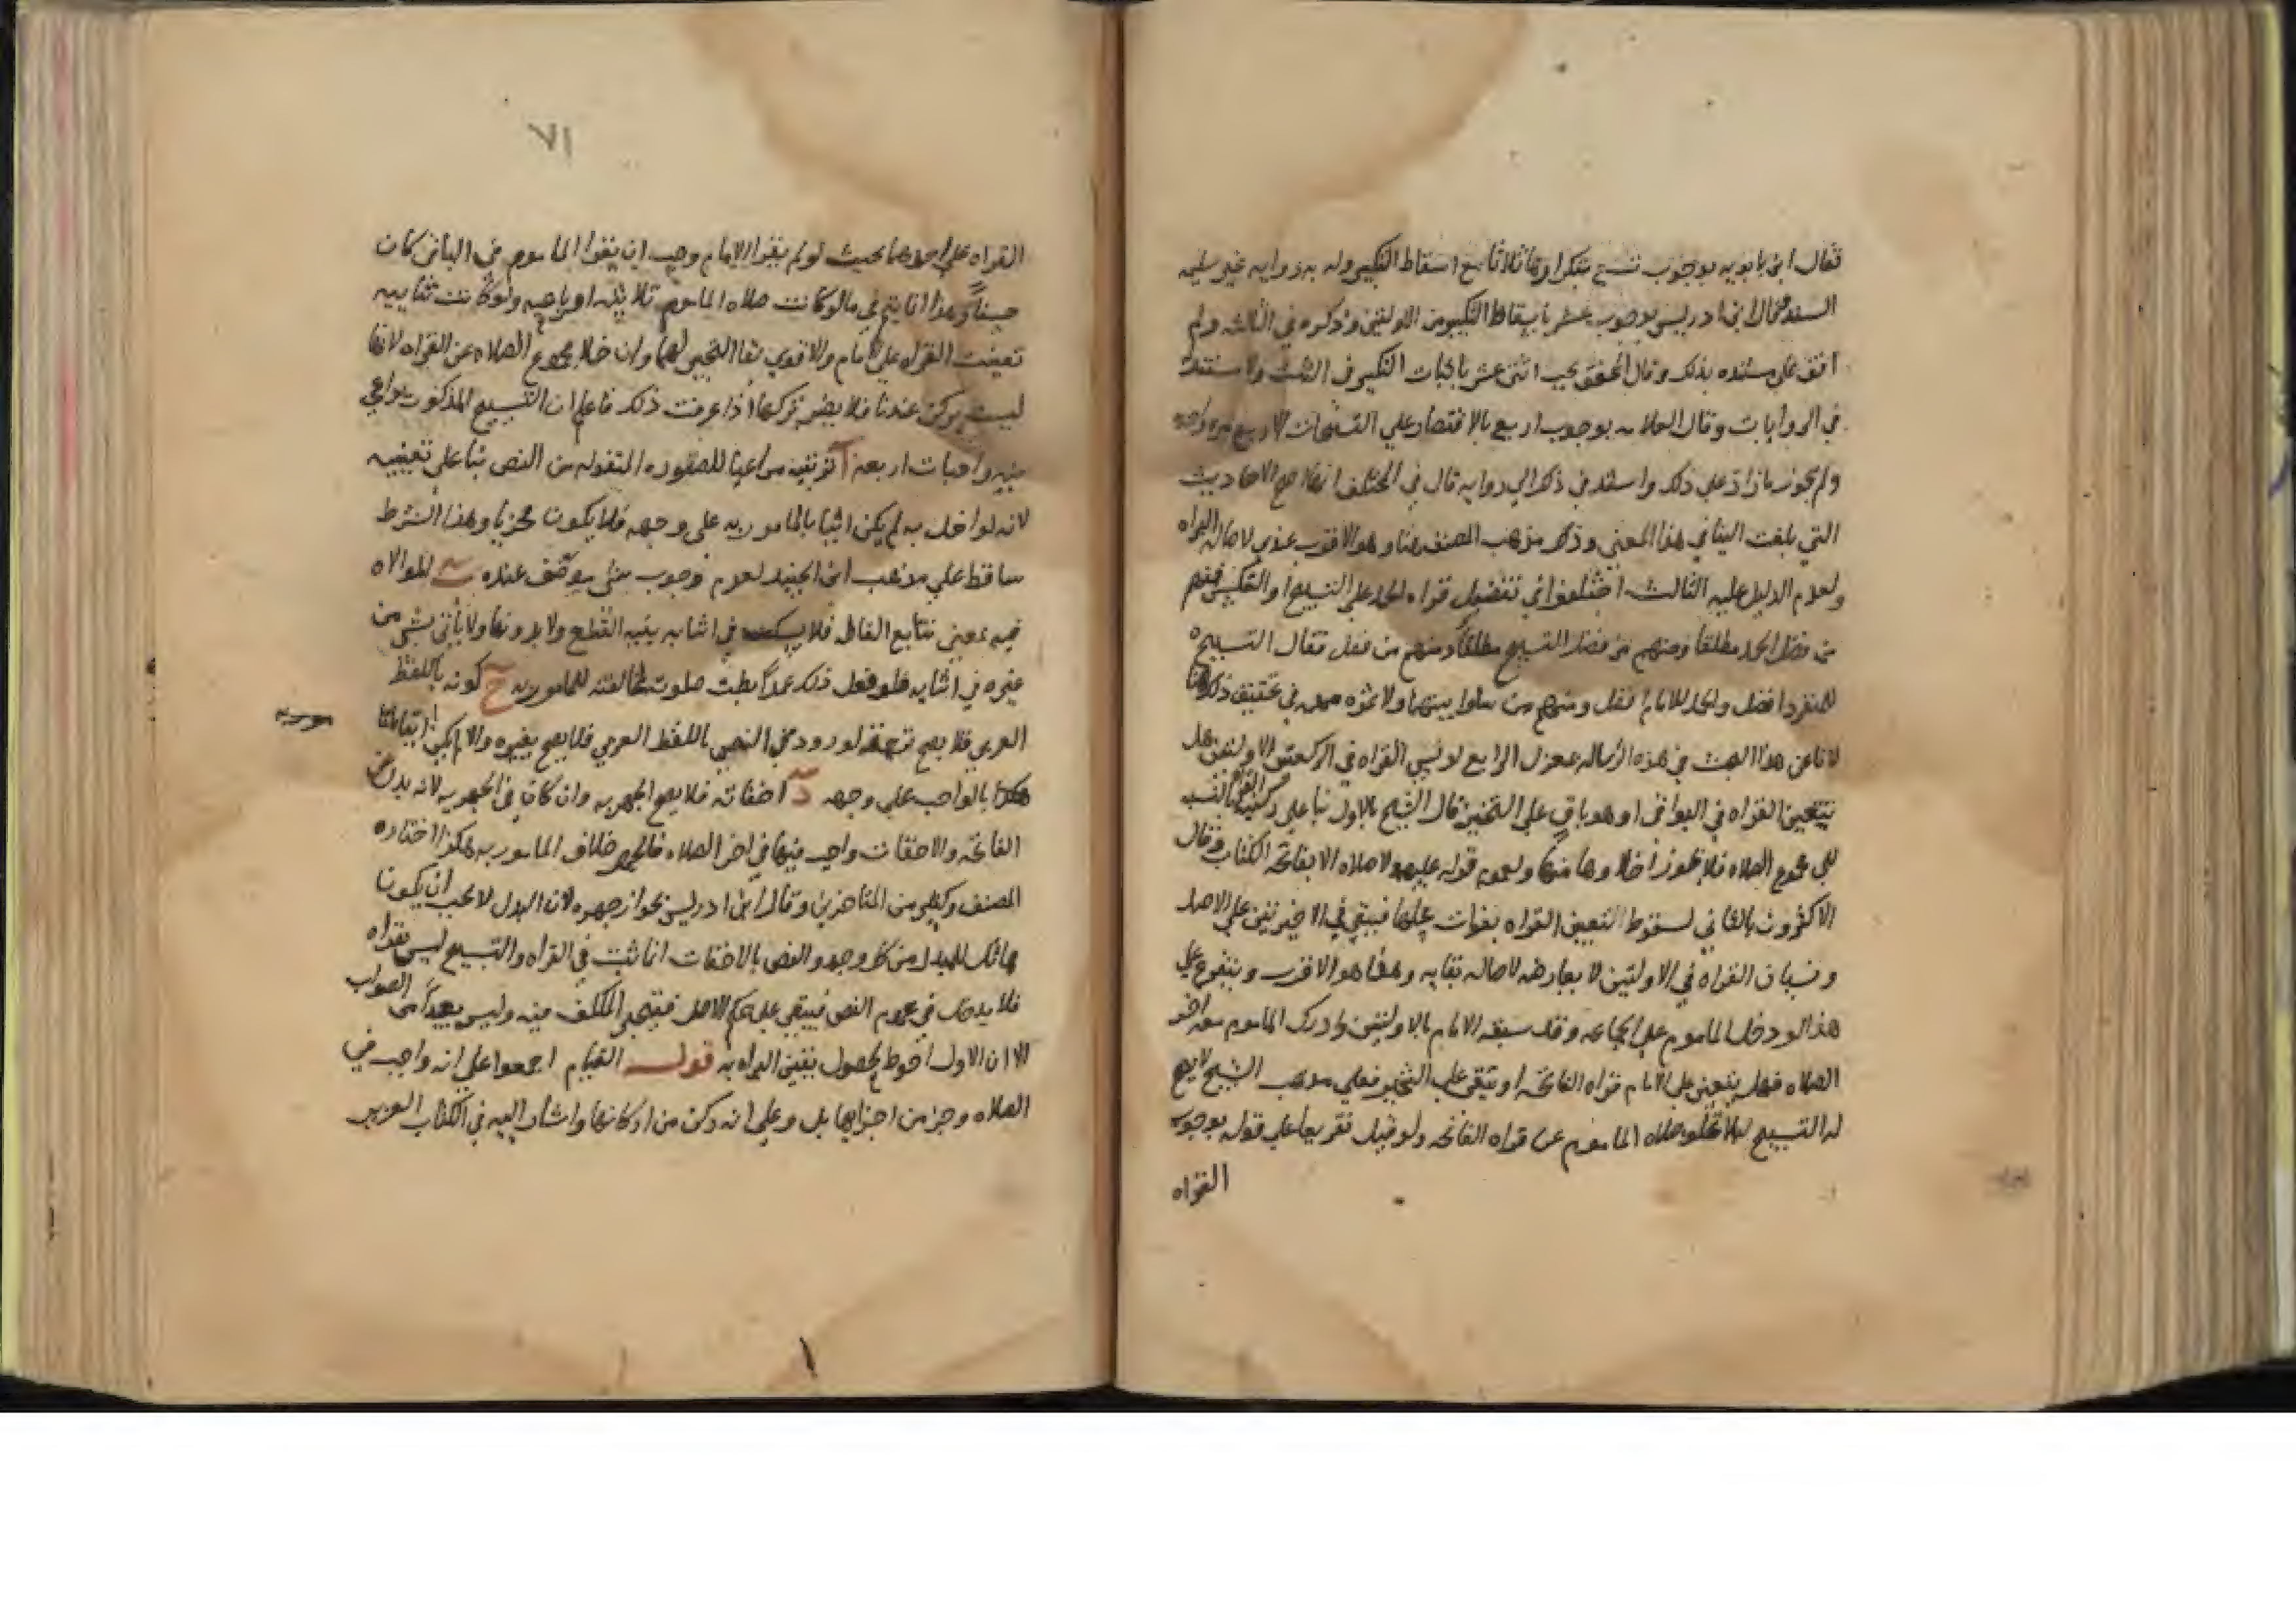 فقال ابن بابويه بوجوب تسع بتكرارها ثلاثا مع اسقاط التكبير وله به روايه غير سليمه
السند وقال ابن ادريس بوجوب عشر باسقاط التكبير من الاولتين وذكره في الثالثه ولم
اقف على مستنده بذلك وقال المحقق يجب اثنى عشر باثبات التكبير في الثلث ولا مستند له
في الروايات وقال العلامه بوجوب اربع بالاقتصار علي التسبيحات الاربع مره واحده
ولم يجوز ما زاد علي ذلك واستند في ذلك الي روايه قال في المختلف انها اصح الاحاديث
التي بلغت الينا في هذا المعني وذكر مذهب المصنف هنا وهو الاقرب عندي لاصاله البراه
ولعدم الدليل عليه الثالث اختلفوا في تفضيل قراه الحمد علي التسبيح او العكس فمنهم
من فضل الحمد مطلقا ومنهم من فضل التسبيح مطلقا ومنهم من فصل فقال التسبيح
للمنفرد افضل والحمد للامام افضل ومنهم من ساوا بينهما ولا ثمره مهمه في تحقيق ذلك هنا
لانا عن هذا البحث في هذه الرساله بمعزل الرابع لو نسي القراه في الركعتين الاولتين هل
تتعين القراه في البواقي او هو باق علي التخيير قال الشيخ بالاول بنا علي ركنيه القراه بالنسبه
الي مجموع الصلاه فلا يجوز اخلاوها منها ولعموم قوله عليه لا صلاه الا بفاتحه الكتاب وقال
الاكثرون بالثاني لسقوط التعيين القراه بفوات محلها فيبقي في الاخيرتين علي الاصل
ونسيان القراه في الاولتين لا يعارضه لاصاله بقايه وهذا هو الاقرب ويتفرع علي
هذا لو دخل الماموم علي الجماعه وقد سبقه الامام بالاولتين وادرك الماموم معه اخر
الصلاه فهل يتعين علي الامام قراه الفاتحه او يبقي علي التخيير فعلي مذهب الشيخ لا يصح
له التسبيح ليلا تخلو صلاه الماموم عن قراه الفاتحه ولو قيل تفريعا علي قوله بوجوب
القراه
٧١
القراه علي احدهما بحيث لو لم يقرا الامام وجب ان يقرا الماموم في الباقي كان
حسنا وهذا انما يتم في ما لو كانت صلاه الماموم ثلاثيه او رباعيه ولو كانت ثنائيه
تعينت القراه علي الامام والاقوي بقا التخيير لهما وان خلا مجموع الصلاه عن القراه لانها
ليست بركن عندنا فلا يضر تركها اذا عرفت ذلك فاعلم ان التسبيح المذكور يراعي
فيه واجبات اربعه آ ترتيبه مراعيا للصوره المنقوله من النص بنا على تعيينه
لانه لو اخل به لم يكن اتيا بالمامور به علي وجهه فلا يكون مجزيا وهذا الشرط
ساقط علي مذهب ابن الجنيد لعدم وجوب شي موظف عنده ب الموالاه
فيه بمعني تتابع الفاظه فلا يسكت في اثنايه بنيه القطع ولا بدونها ولا ياتي بشي من
غيره في اثنايه فلو فعل ذلك عمدا بطلت صلوته لمخالفته للمامور به ج كونه باللفظ
العربي فلا يصح ترجمته لورود النص باللفظ العربي فلا يصح بغيره والا لم يكن اتيا
بالواجب علي وجهه د اخفاته فلا يصح الجهر به وان كان في الجهريه لانه بدل عن
الفاتحه والاخفات واجب فيها في اخر الصلاه فالجهر خلاف المامور به هكذا اختاره
المصنف وكثير من المتاخرين وقال ابن ادريس بجواز جهره لان البدل لا يجب ان يكون
مماثلا للمبدل من كل وجه والنص بالاخفات انما ثبت في القراه والتسبيح ليس بقراه
فلا يدخل في عموم النص فيبقي علي حكم الاصل فيتخير المكلف فيه وليس بعيدا من الصواب
الا ان الاول احوط لحصول يقين البراه به قوله القيام اجمعوا علي انه واجب في
الصلاه وجز من اجزايها بل وعلي انه ركن من اركانها واشار اليه في الكتاب العزيز